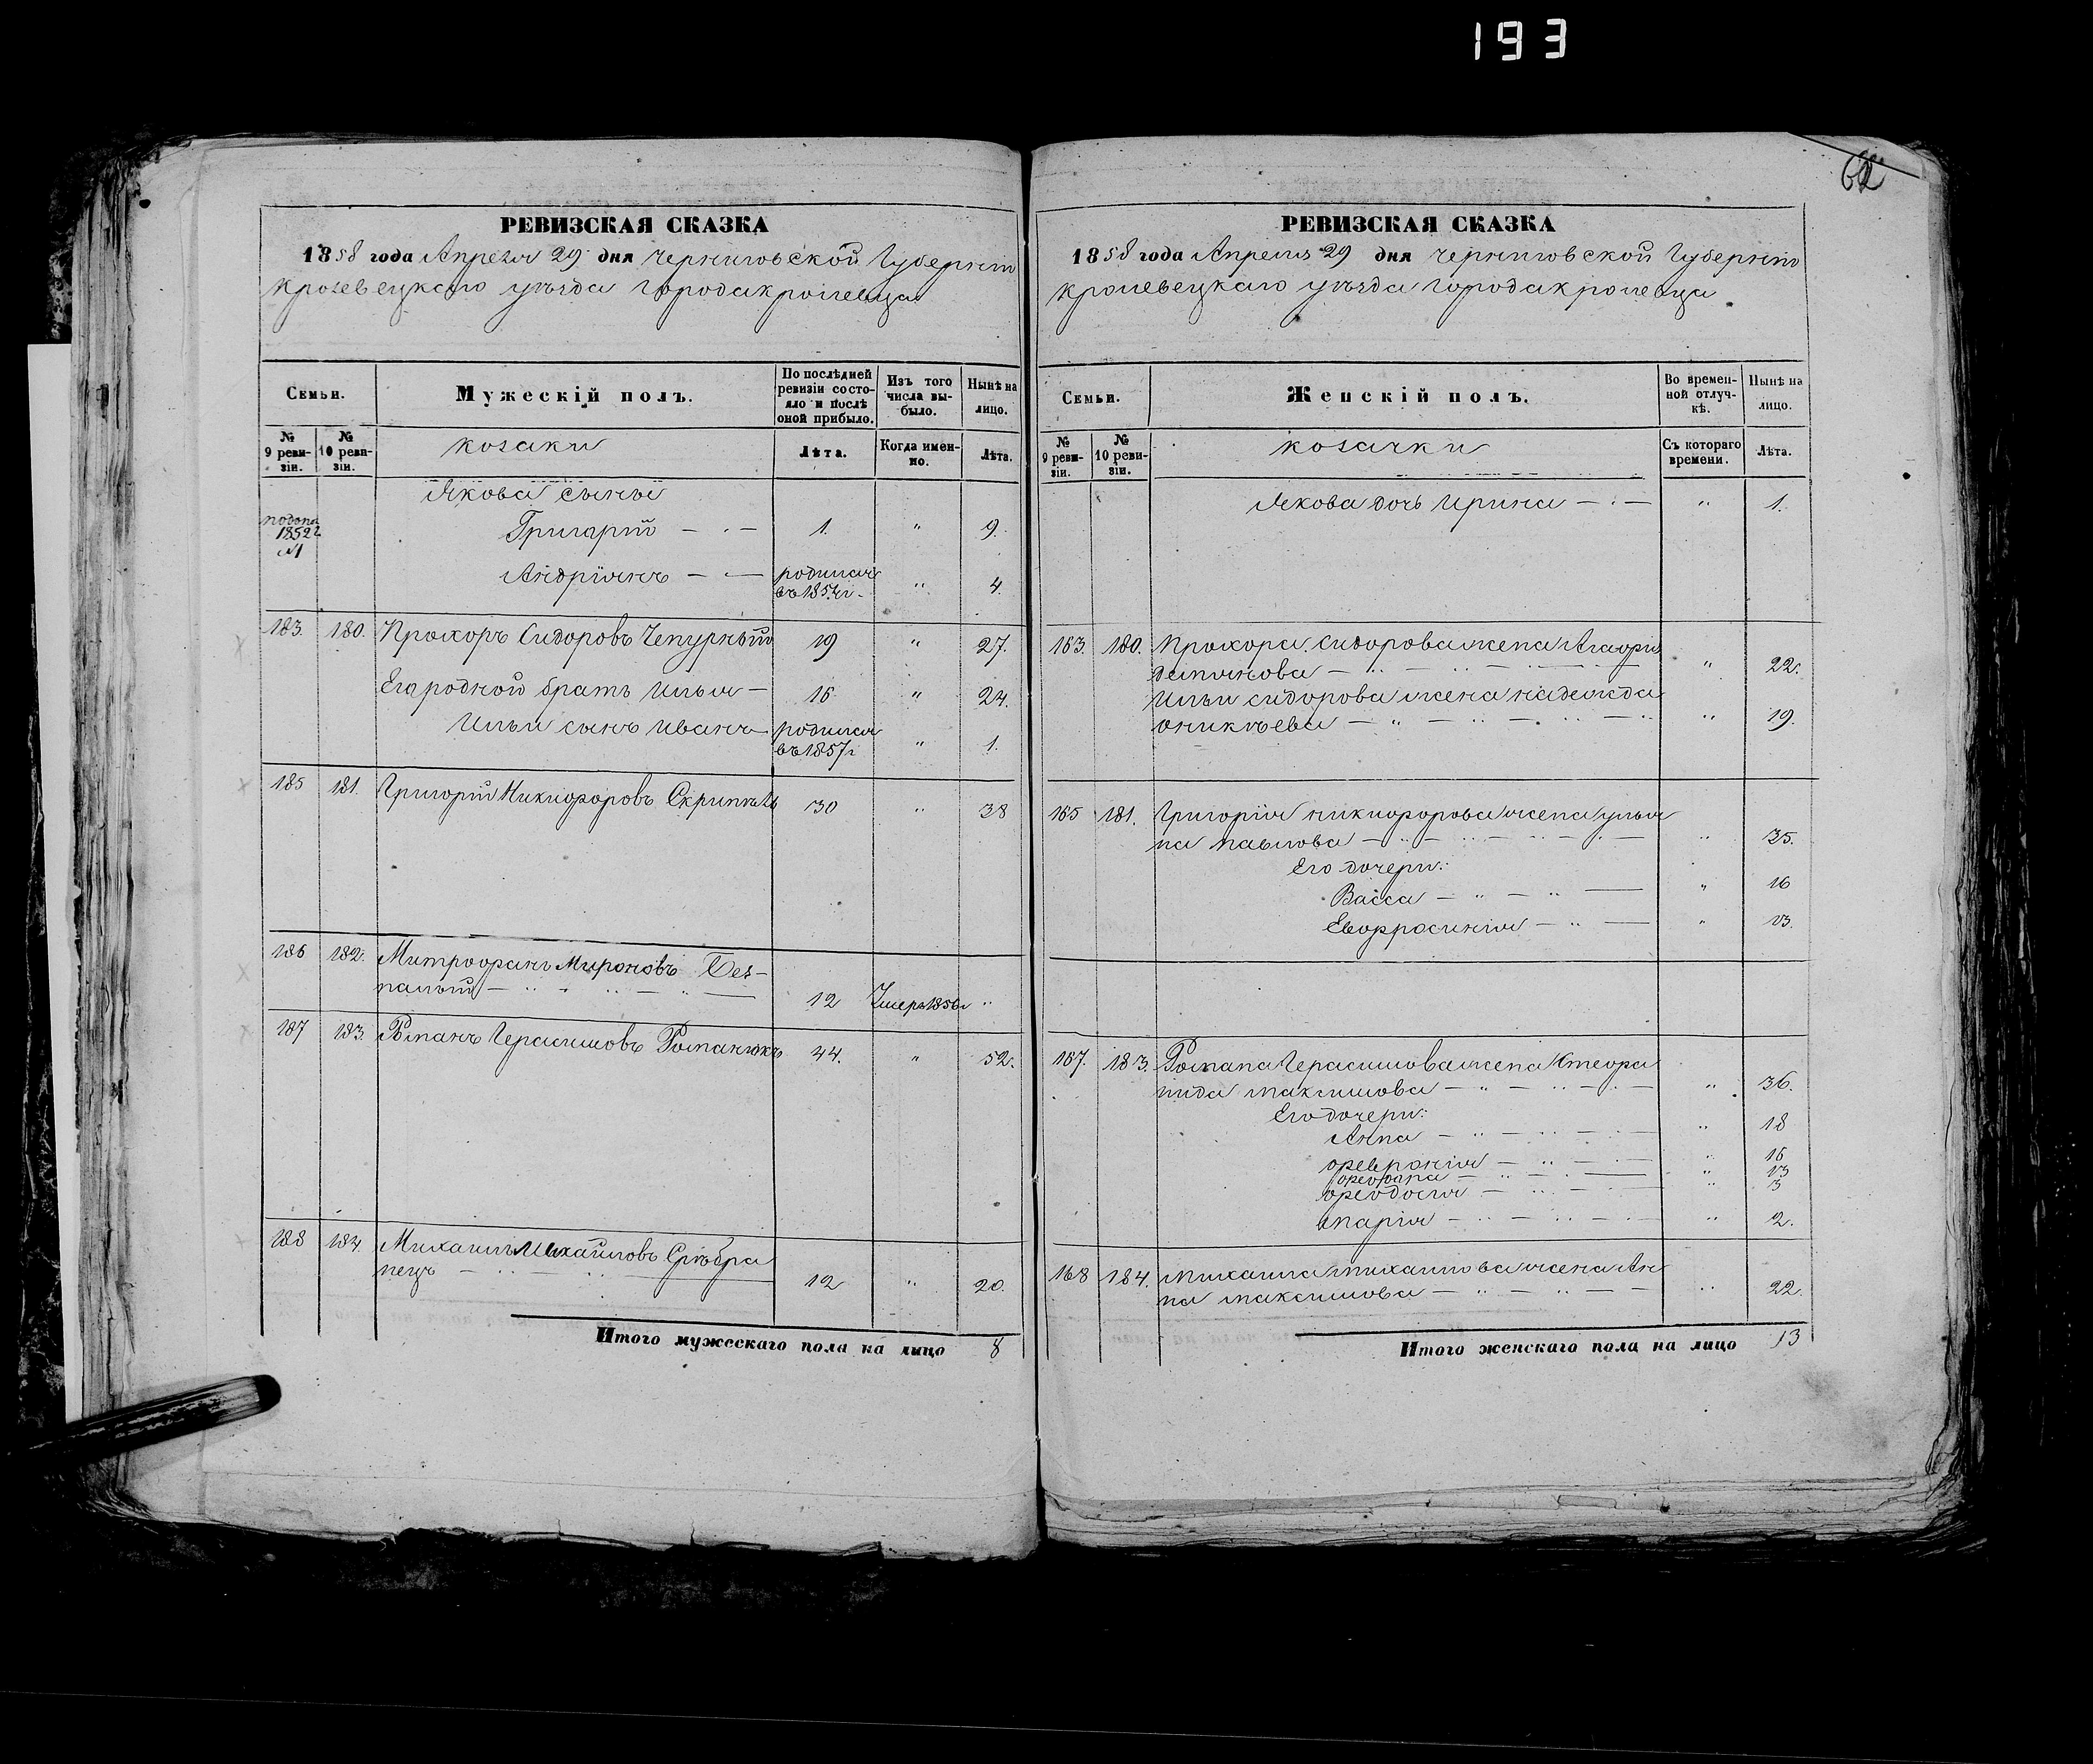 193
62
РЕВИЗСКАЯ СКАЗКА
1858 года Апреля 29 дня Черниговской Губернiи
Кролевецкаго уѣзда Города Кролевца
Семьи.
Мужескiй полъ.
По послѣдней ревизiи состояло и послѣ оной прибыло.
Изъ того числа выбыло.
Нынѣ на лицо.
№ 9 ревизiи.
№ 10 ревизiи.
козаки
Лѣта.
Когда именно.
Лѣта.
Якова сыновья
подоп. 1852 г. №1
Григорiй — 1. " 9.
Андрiянъ — родился въ 1854 г. " 4.
183. 180. Прохоръ Сидоровъ Чепурный 19 " 27.
Его родной братъ Илья — 16 " 24.
Ильи сынъ Иванъ — родился въ 1857 г " 1.
185 181. Григорiй Никифоровъ Скрипка 30 " 38
186 182. Митрофанъ Мироновъ Без-
палый — 12 Умеръ 1856 г "
187 183. Романъ Герасимовъ Романюкъ 44. " 52.
188 184. Михаилъ Михайловъ Сребра
нецъ — 12 " 20.
Итого мужескаго пола на лицо 8
РЕВИЗСКАЯ СКАЗКА
1858 года Апреля 29 дня Черниговской Губернiи
Кролевецкаго уѣзда Города Кролевца
Семьи.
Женскiй полъ.
Во временной отлучкѣ.
Нынѣ на лицо.
№ 9 ревизiи.
№ 10 ревизiи.
козачки
Съ котораго времени.
Лѣта.
Якова дочь Ирина — " 1.
183. 180. Прохора Сидорова жена Агафи
— " 22.
Ильи Сидорова жена Надежда
Оникѣева — " 19.
185 181. Григорiя Никифорова жена Улья
на Павлова — " 35.
Его дочери:
Васса — " 16
Евфросинiя — " 13.
187. 183. Романа Герасимова жена Клеопа
тида Максимова — " 36.
Его дочери:
Анна — " 18
Февронiя — " 16
13
Феодосiя — " 3
Марiя — " 2.
188 184. Михаила Михайлова жена Ан
на Максимова — " 22.
Итого женскаго пола на лицо 13